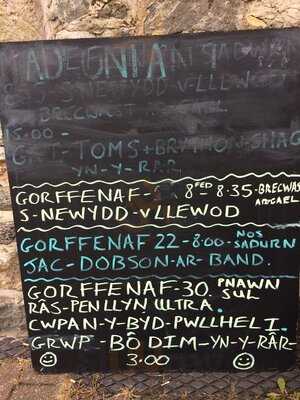 S-NEWYDD-V-LLEWOD
15.00-
TOMS+BRYTHON-SHAG
YN-Y-RAR
GORFFENAF- 8FED 8.35-BRECWAST
AR GAEL
S-NEWYDD-V LLEWOD
GORFFENAF 22-8:00- NOS SADURN
JAC-DOBSON-AR-BAND.
GORFFENAF-30. PNAWN SUL
RÂS-PENLLYN ULTRA.
CWPAN-Y-BYD-PWLLHELI.
GRWP-BÔ DIM-YN-Y-RÂR-
3.00